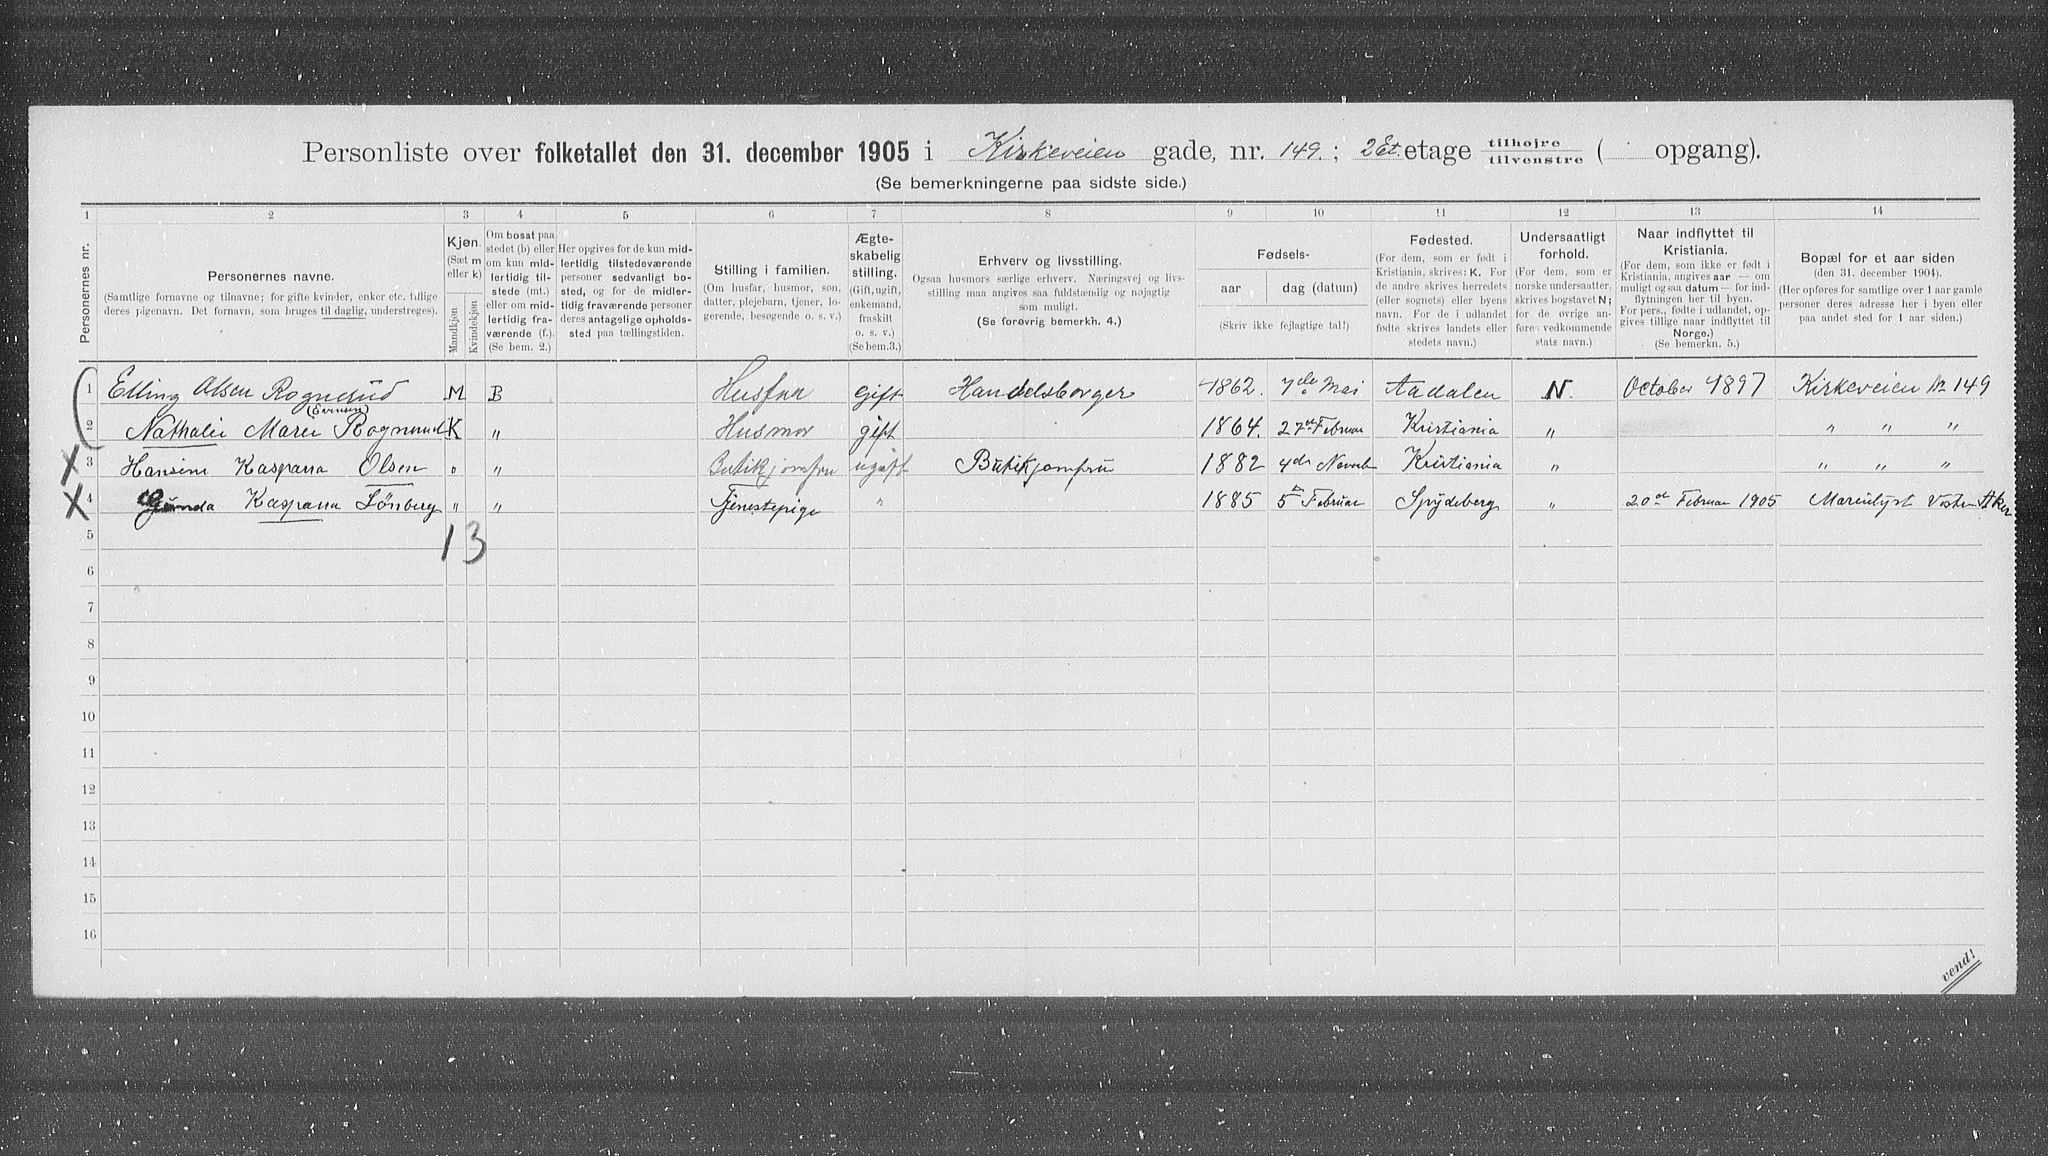 Personliste over folketallet den 31. december 1905 i Kirkeveien gade, nr. 149. ; 2 Et. etage tilhøjre tilvenstre ( opgang).
(Se bemerkningerne paa sidste side.)
1 2 3 4 5 6 7 8 9 10 11 12 13 14
Personernes nr.
Personernes navne.
(Samtlige fornavne og tilnavne; for gifte kvinder, enker etc. tillige
deres pigenavn. Det fornavn, som bruges til daglig, understreges).
Kjøn.
(Sæt m
eller k)
Mandkjøn
Kvindekjøn
Om bosat paa
stedet (b) eller
om kun mid-
lertidig til-
stede (mt.)
eller om mid-
lertidig fra-
værende (f.).
(Se bem. 2.)
Her opgives for de kun mid-
lertidig tilstedeværende
personer sedvanligt bo-
sted, og for de midler-
tidig fraværende personer
deres antagelige opholds-
sted paa tællingstiden.
Stilling i familien.
(Om husfar, husmor, søn,
datter, plejebarn, tjener, lo-
gerende, besøgende o. s. v.)
Ægte-
skabelig
stilling.
(Gift, ugift,
enkemand,
fraskilt
o. s. v.)
(Se bem.3.)
Erhverv og livsstilling.
Ogsaa husmors særlige erhverv. Næringsvej og livs-
stilling maa angives saa fuldstændig og nøjagtig
som muligt.
(Se forøvrig bemerkh. 4.)
Fødsels-
aar
dag (datum)
(Skriv ikke fejlagtige tal!)
Fødested.
(For dem, som er født i
Kristiania, skrives: K. For
de andre skrives herredets
(eller sognets) eller byens
navn. For de i udlandet
fødte skrives landets eller
stedets navn.)
Undersaatligt
forhold.
(For dem, som er
norske undersaatter,
skrives bogstavet N;
for de øvrige an-
føres vedkommende
stats navn.)
Naar indflyttet til
Kristiania.
(For dem, som ikke er født i
Kristiania, angives aar — om
muligt og saa datum — for ind-
flytningen her til byen.
For pers., fødte i udlandet, op-
gives tillige naar indflyttet til
Norge.)
(Se bemerkn. 5.)
Bopæl for et aar siden
(den 31. december 1904).
(Her opføres for samtlige over 1 aar gamle
personer deres adresse her i byen eller
paa andet sted for 1 aar siden.)
1 Elling Olsen Rognerud M B Husfar gift Handelsborger 1862. 7de Mai Aadalen N. October 1897 Kirkeveien No 149
(Evensen)
2 Nathalie Maren Rognerud K " Husmor gift 1864. 27de Februar Kristiania " " " "
X 3 Hansine Kaspara Olsen " " Butikjomfru ugift Butikjomfru 1882 4de Novemb Kristiania " " " "
X 4 Gunda Kaspara Lönberg " " Tjenestepige " 1885 5te Februar Spydeberg " 20de Februar 1905 Marienlyst Vestre Aker
1 3
5
6
7
8
9
10
11
12
13
14
15
16
vend!